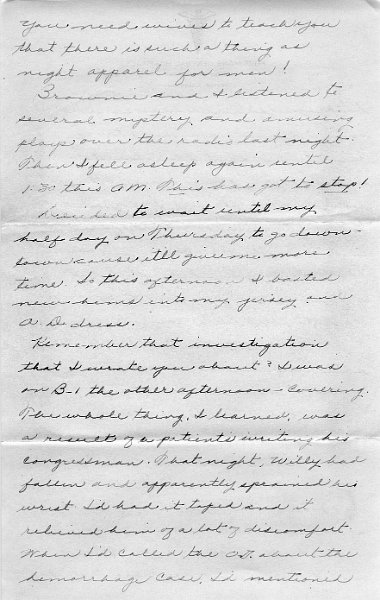 You need wives to teach you
that there is such a thing as
night apparel for men!
Brownie and I listened to
several mystery and amusing
plays over the radio last night.
Then I fell asleep again until
1:30 this A.M. This has got to stop!
Decided to wait until my
half day on Thursday to go down-
town cause it'll give me more
time. So this afternoon I basted
new hems into my jersey and
A.D. dress.
Remember that investigation
that I wrote you about? I was
on B-1 the other afternoon - covering.
The whole thing, I learned, was
a result of a patient's writing his
congressman. That night, Willy had
fallen and apparently sprained his
wrist. I'd had it taped and it
relieved him of a lot of discomfort.
When I'd called the O.D. about the
hemorrhage case, I'd mentioned